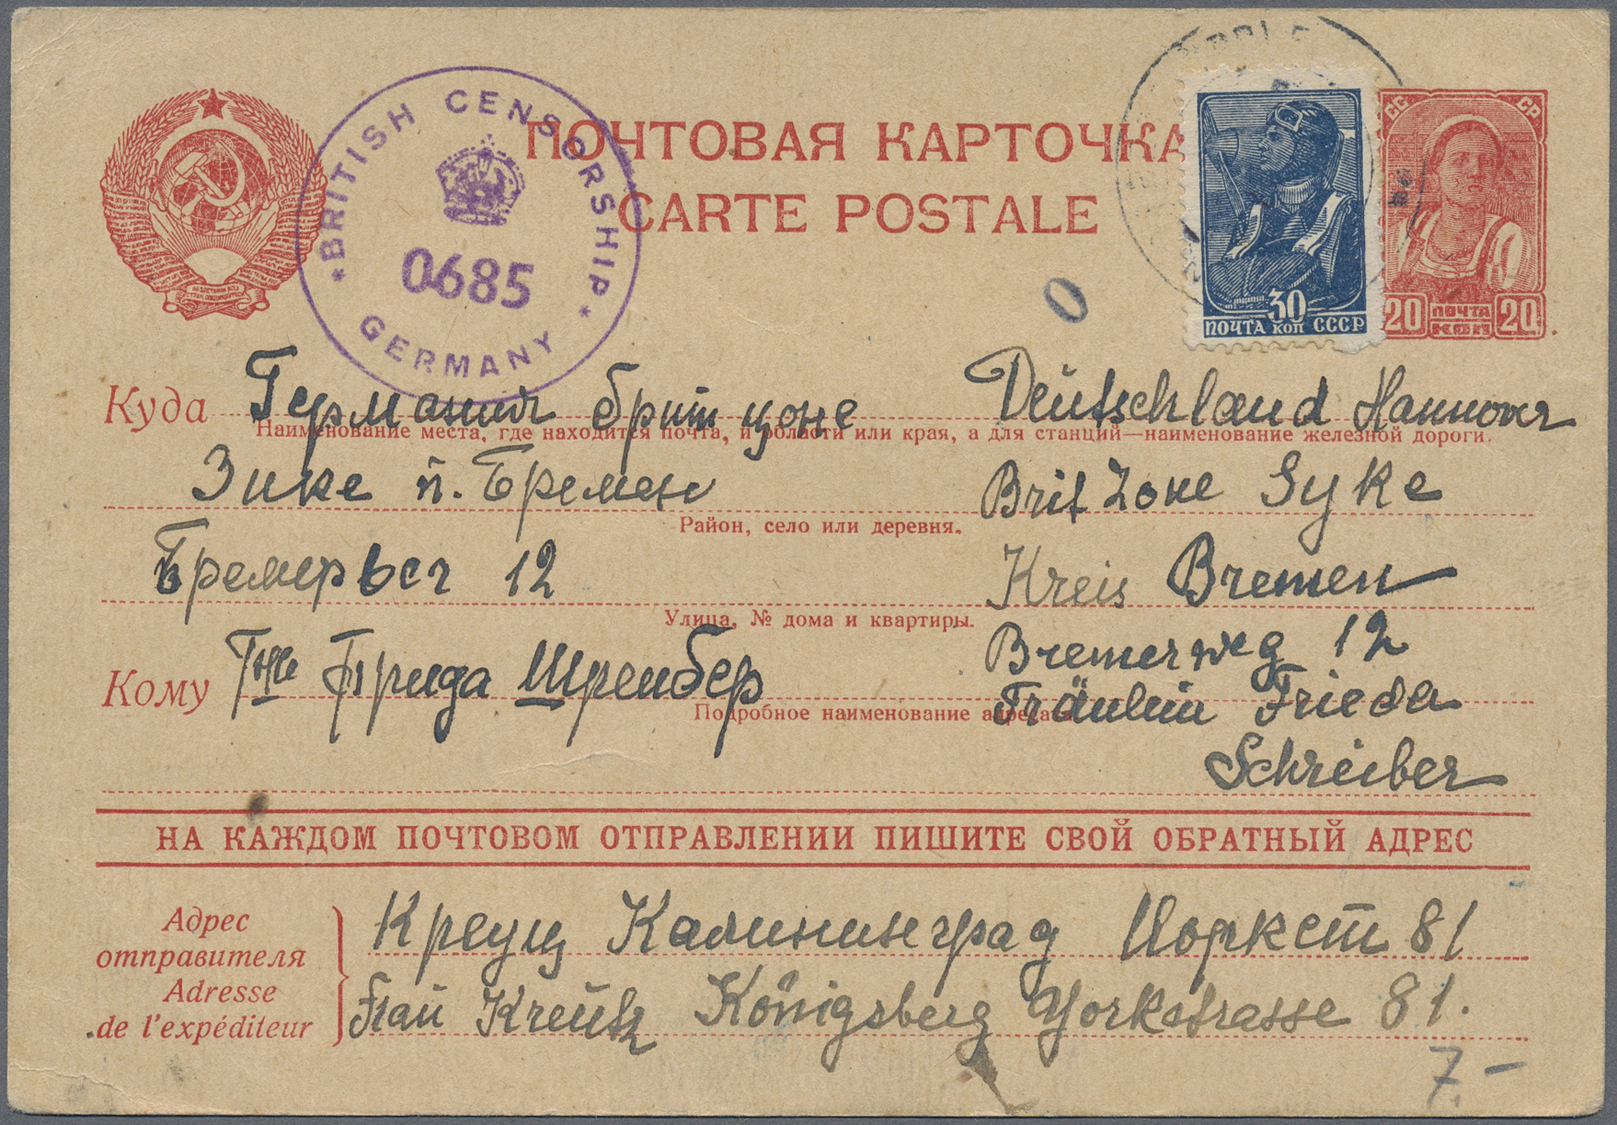 ПОЧТОВАЯ КАРТОЧКА
CARTE POSTALE
BRITISH CENSORSHIP
0685
GERMANY
30
ПОЧТА КОП СССР
СС СР
20 ПОЧТА 20
КОП
Куда Германия брит цоне
Deutschland Hannover
Наименование места, где находится почта, и области или края, а для станций—наименование железной дороги.
Зике п. Бремен
Brit Zone Syke
Район, село или деревня.
Бремервег 12
Kreis Bremen
Улица, № дома и квартиры.
Bremerweg 12
Кому Фрида Шреибер
Fräulein Frieda
Подробное наименование адресата
Schreiber
НА КАЖДОМ ПОЧТОВОМ ОТПРАВЛЕНИИ ПИШИТЕ СВОЙ ОБРАТНЫЙ АДРЕС
Адрес
отправителя
Adresse
de l'expéditeur
Креуц Калининград Иоркст 81
Frau Kreutz Königsberg Yorkstrasse 81.
7.-